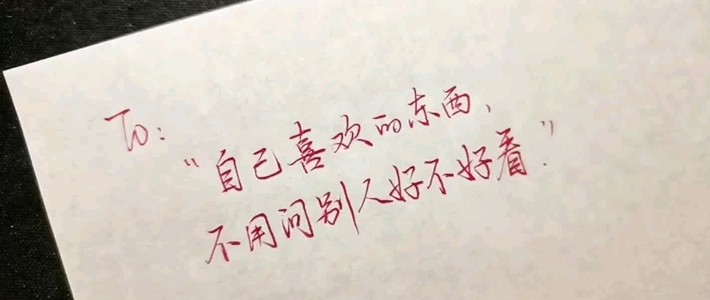 To:
“自己喜欢的东西,
不用问别人好不好看.”